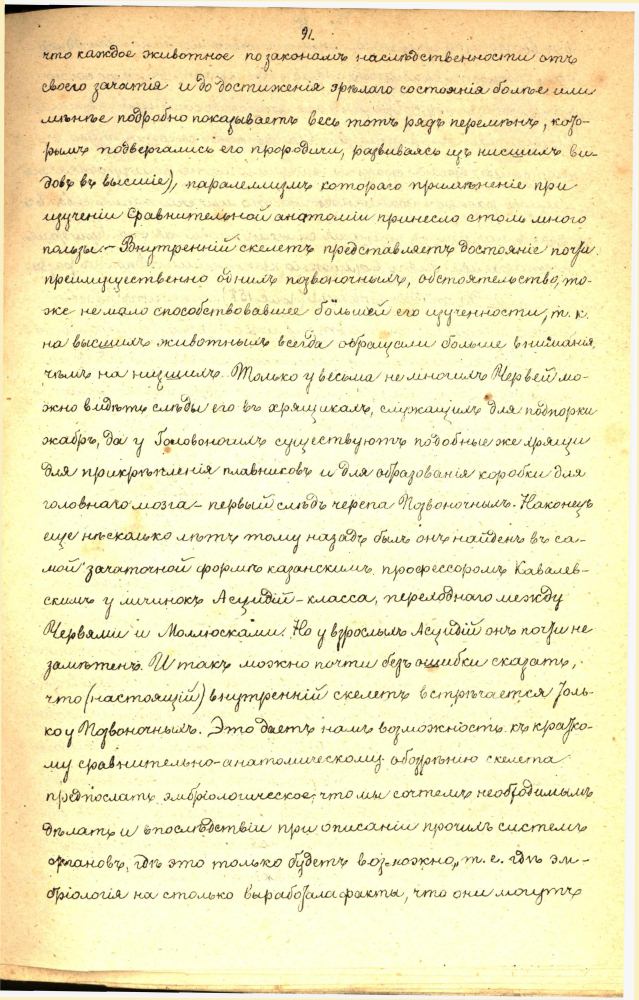 91.
что каждое животное по законамъ наслѣдственности отъ
своего зачатія и до достиженія зрѣлаго состоянія болѣе или
менѣе подробно показываетъ весь тотъ рядъ перемѣнъ, кото-
рымъ подвергались его прородичи, развиваясь изъ нисшихъ ви-
довъ въ высшіе), паралеллизмъ котораго примѣненіе при
изученіи Сравнительной анатоміи принесло столь много
пользы. — Внутренній скелетъ представляетъ достояніе почти
преимущественно однихъ позвоночныхъ, обстоятельство, то-
же не мало способствовавшее большей его изученности, т. к.
на высшихъ животныхъ всегда обращали больше вниманія,
чѣмъ на низшихъ. Только у весьма не многихъ Червей мо-
жно видѣть слѣды его въ хрящикахъ, служащихъ для подпорки
жабръ, да у Головоногихъ существуютъ подобные же хрящи
для прикрѣпленія плавниковъ и для образованія коробки для
головнаго мозга — первый слѣдъ черепа Позвоночныхъ. Наконецъ
еще нѣсколько лѣтъ тому назадъ былъ онъ найденъ въ са-
мой зачаточной формѣ казанскимъ профессоромъ Ковалев-
скимъ у личинокъ Асцидій — класса, переходнаго между
Червями и Молюсками. Но у взрослыхъ Асцидій онъ почти не
замѣтенъ. И такъ можно почти безъ ошибки сказать,
что (настоящій) внутренній скелетъ встрѣчается толь-
ко у Позвоночныхъ. Это даетъ намъ возможность къ кратко-
му сравнительно-анатомическому обозрѣнію скелета
предпослать эмбріологическое, что мы сочтемъ необходимымъ
дѣлать и впослѣдствіи при описаніи прочихъ системъ
органовъ, гдѣ это только будетъ возможно, т. е. гдѣ эм-
бріологія на столько выработала факты, что они могутъ